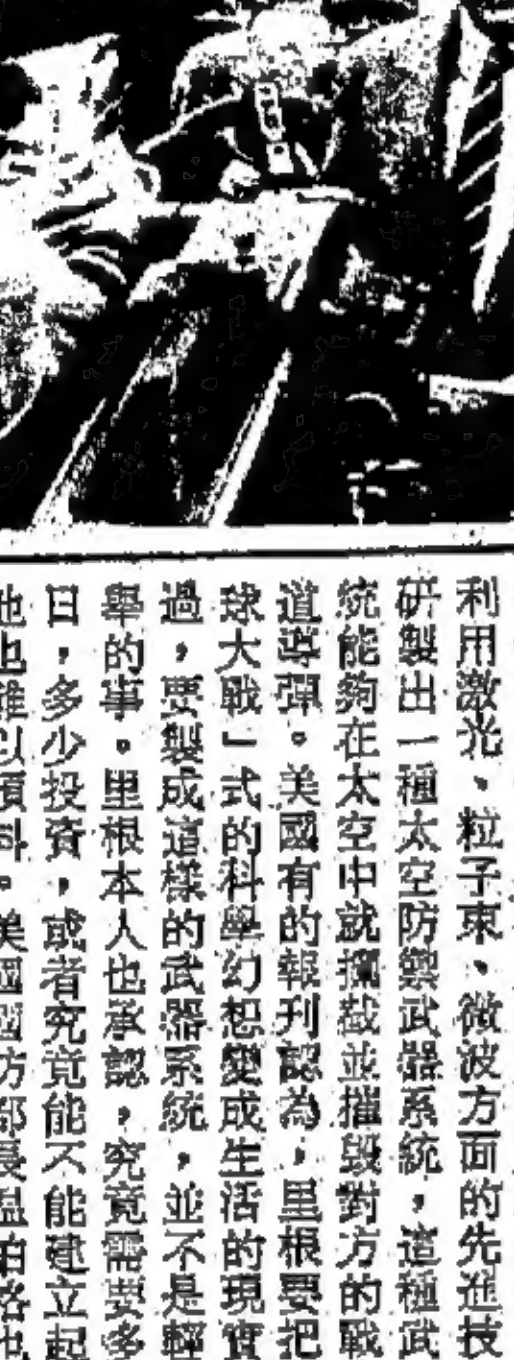 利用激光、粒子束、微波方面的先進技
研製出一種太空防禦武器系統，這種武
統能夠在太空中就攔截並摧毀對方的戰
道導彈。美國有的報刊認為，里根要把
球大戰」式的科學幻想變成生活的現實
過，要製成這樣的武器系統，並不是輕
舉的事。里根本人也承認，究竟需要多
日，多少投資，或者究竟能不能建立起
他也難以預料。美國國防部長溫伯格也